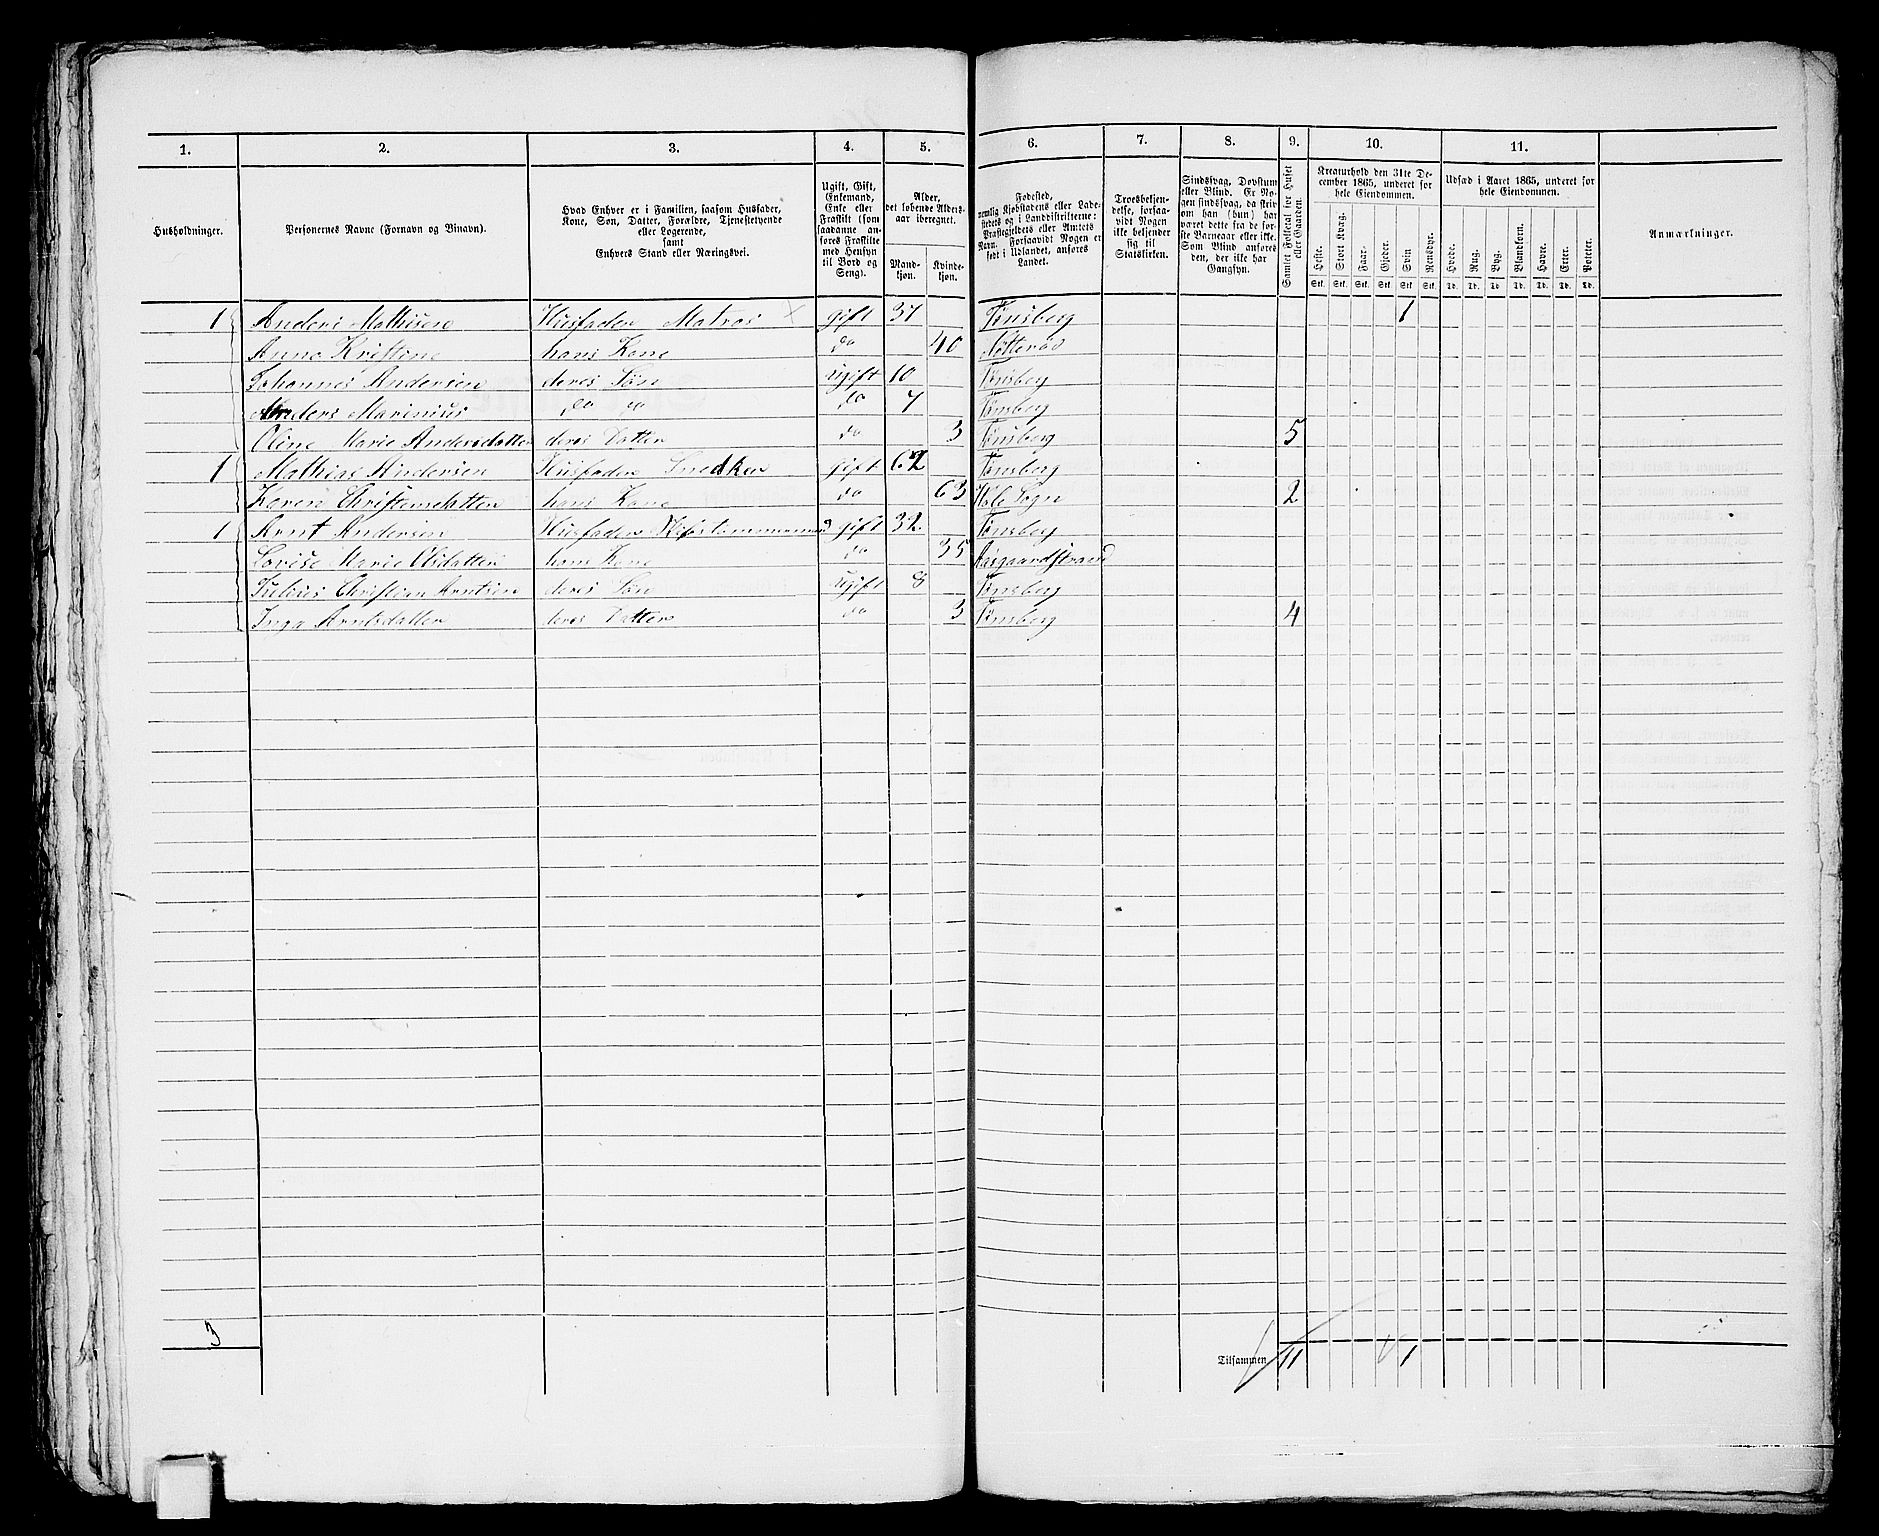 1. 2. 3. 4. 5. 6. 7. 8. 9. 10. 11.
Husholdninger.
Personernes Navne (Fornavn og Binavn).
Hvad Enhver er i Familien, saasom Husfader,
Kone, Søn, Datter, Forældre, Tjenestetyende
eller Logerende,
samt
Enhvers Stand eller Næringsvei.
Ugift, Gift,
Enkemand,
Enke eller
Fraskilt (som
saadanne an-
føres Fraskilte
med Hensyn
til Bord og
Seng).
Alder,
det løbende Alders-
aar iberegnet.
Mand-
kjøn.
Kvinde-
kjøn.
Fødested,
nemlig Kjøbstadens eller Lade-
stedets og i Landdistrikterne:
Præstegjeldets eller Amtets
Navn. Forsaavidt Nogen er
født i Udlandet, anføres
Landet.
Troesbekjen-
delse, forsaa-
vidt Nogen
ikke bekjender
sig til
Statskirken.
Sindssvag, Døvstum
eller Blind. Er No-
gen sindssvag, da skriv
om han (hun) har
været dette fra de før-
ste Barneaar eller ikke.
Som Blind anføres
den, der ikke har
Gangsyn.
Samlet Folketal for Huset
eller Gaarden.
Kreaturhold den 31te De-
cember 1865, underet for
hele Eiendommen.
Heste. Stort Kvæg. Faar. Gjeder. Svin Rensdyr.
Stk. Stk. Stk. Stk. Stk Stk.
Udsæd i Aaret 1865, underet for
hele Eiendommen.
Hvede. Rug. Byg. Blandkorn. Havre. Erter. Poteter.
Td. Td. Td Td. Td. Td. Td.
Anmærkninger.
1 Anders Mathisen Husfader Matros gift 37 Tønsberg 1
Anne Kristine hans Kone do 40 Nøtterøe
Johannes Andersen deres Søn ugift 10 Tønsberg
Anders Marinius do do do 7 Tønsberg
Oline Marie Andersdatter deres Datter do 3 Tønsberg 5
1 Mathias Andersen Husfader Snedker gift 62 Tønsberg
Karen Christensdatter hans Kone do 63 Sogn 2
1 Arnt Andersen Husfader Skibstømmermand gift 32 Tønsberg
Lovise Marie Olsdatter hans Kone do 35 Aasgaardstrand
Julius Christian Arntsen deres Søn ugift 8 Tønsberg
Inga Arntsdatter deres Datter do 3 Tønsberg 4
3
Tilsammen 11 1